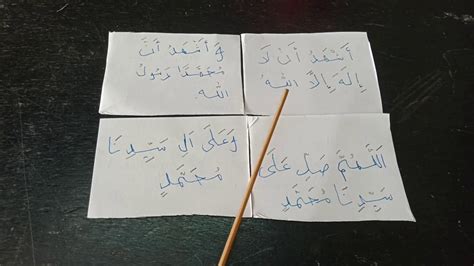 أَشْهَدُ أَنْ لَا
إِلَهَ إِلَّا اللهُ
وَأَشْهَدُ أَنَّ
مُحَمَّدًا رَسُولُ
اللهِ
اَللَّهُمَّ صَلِ عَلَى
سَيِّدِنَا مُحَمَّدٍ
وَعَلَى اَلِ سَيِّدِنَا
مُحَمَّدٍ